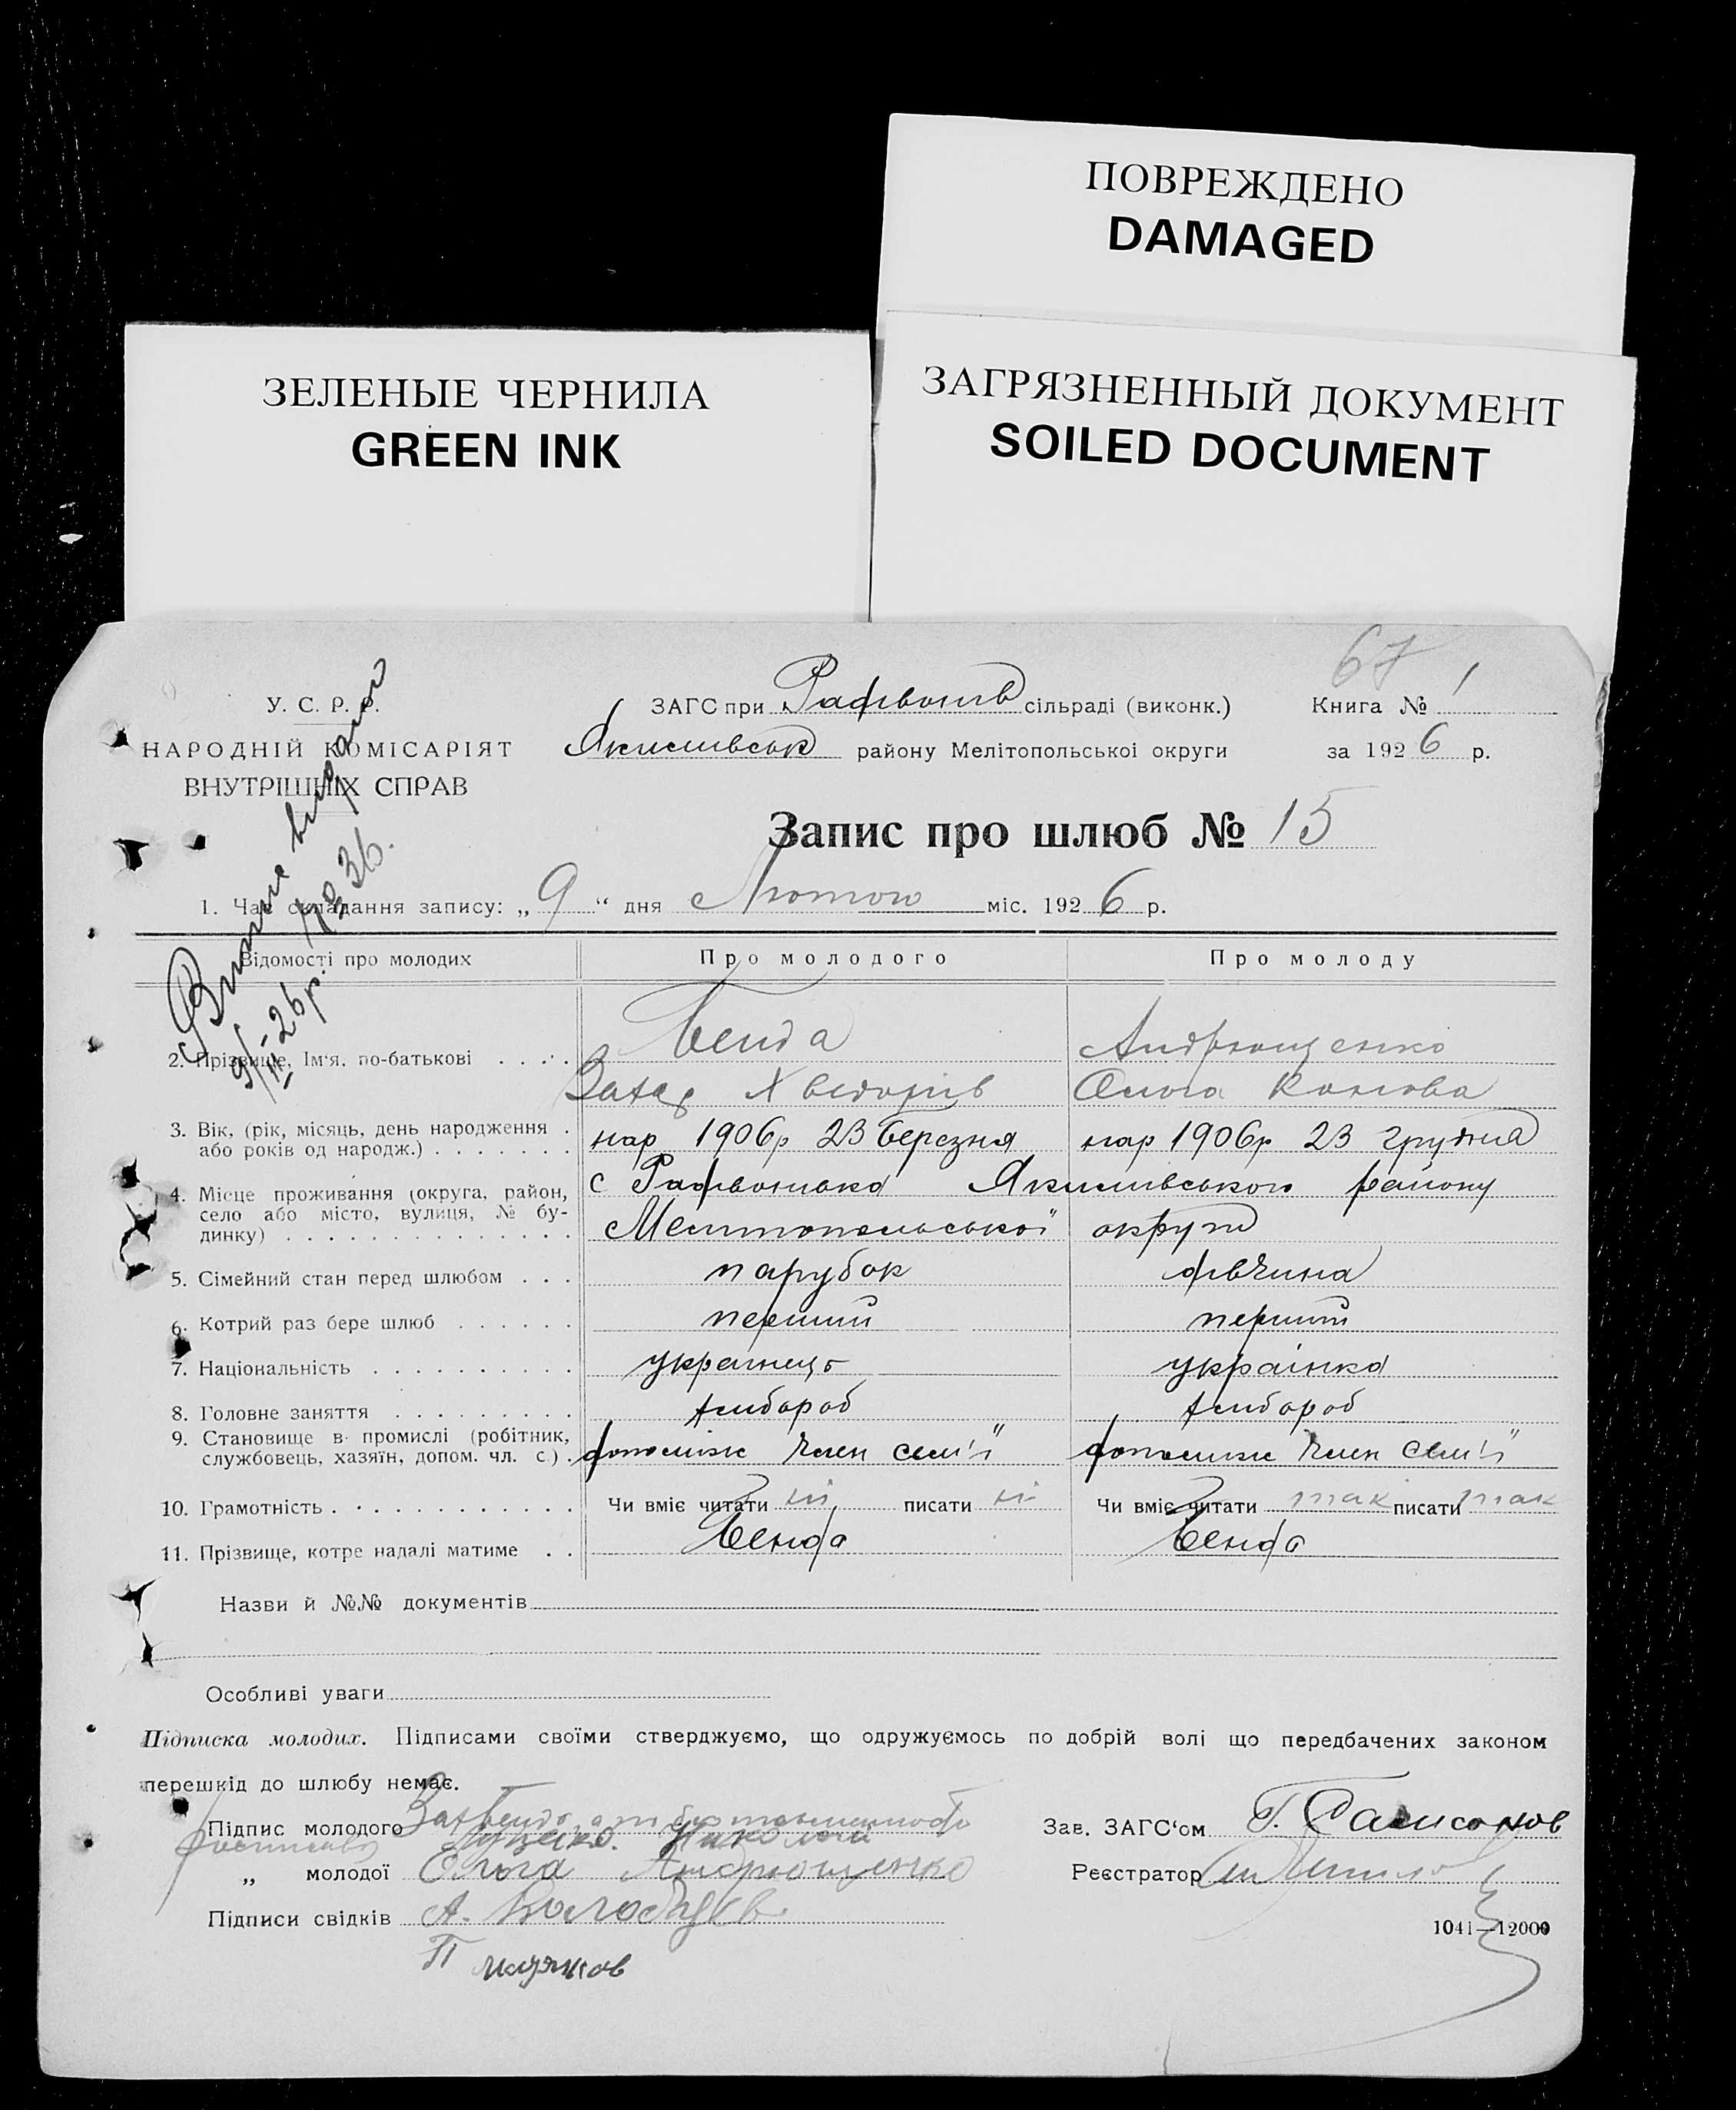 ПОВРЕЖДЕНО
DAMAGED
ЗЕЛЕНЫЕ ЧЕРНИЛА
GREEN INK
ЗАГРЯЗНЕННЫЙ ДОКУМЕНТ
SOILED DOCUMENT
67
У. С. Р. Р.
НАРОДНІЙ КОМІСАРІЯТ
ВНУТРІШНІХ СПРАВ
ЗАГС при сільраді (виконк.)
Якимівськ району Мелітопольської округи
Книга № 1
за 1926 р.
Запис про шлюб № 15
1. Час складання запису: „9“ дня Лютого міс. 1926 р.
№ 36.
9/II-26 р.
Відомості про молодих Про молодого Про молоду
2. Прізвище, Ім'я, по-батькові Бенда Андрющенко
Захар Хведорів Ольга
3. Вік, (рік, місяць, день народження або років од народж.) нар 1906р 23 березня нар 1906р 23 грудня
4. Місце проживання (округа, район, село або місто, вулиця, № будинку) с Якимівського району
Мелітопольської округи
5. Сімейний стан перед шлюбом парубок дівчина
6. Котрий раз бере шлюб перший перший
7. Національність українець українка
8. Головне заняття хлібороб хлібороб
9. Становище в промислі (робітник, службовець, хазяїн, допом. чл. с.) член сем'ї член сем'ї
10. Грамотність Чи вміє читати ні писати ні Чи вміє читати так писати так
11. Прізвище, котре надалі матиме Бенда Бенда
Назви й №№ документів
Особливі уваги
Підписка молодих. Підписами своїми стверджуємо, що одружуємось по добрій волі що передбачених законом
перешкід до шлюбу немає.
Підпис молодого
„ молодої Ольга Андрющенко
Підписи свідків А.
П
Зав. ЗАГС'ом Г. Самсонов
Реєстратор
1041—12000